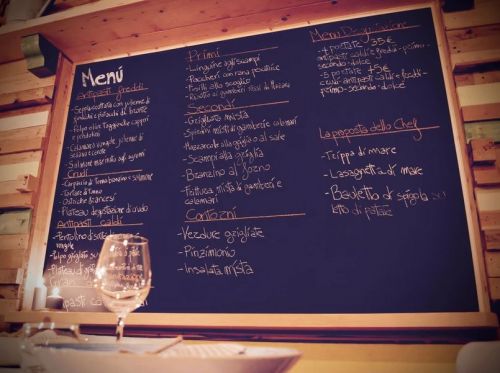 Menú
Antipasti freddi
-Seppia scottata con julienne di
-Polpo alla
capperi
e pendolini
-Calamaro vongole julienne di
sedano e carote
-Salmone marinato agli agrumi
Crudi
-Carpaccio di tonno branzino e salmone
-Tartare di tonno
-Ostriche francesi
-Plateau degustazione di crudo
Antipasti caldi
vongole
-Polpo grigliato su
-Plateau di
Primi
-Linguine agli scampi
-Paccheri con rana pescatrice
-Fusilli allo scoglio
-Risotto ai gamberi rossi di Mazara
Secondi
-Grigliata mista
-Spiedini misti di gamberi e calamari
-Mazzancolle alla griglia o al sale
-Scampi alla griglia
-Branzino al forno
-Frittura mista di gamberi e
calamari
Contorni
-Verdure grigliate
-Pinzimonio
-Insalata mista
Menu Degustazione
-4 portate 35€
antipasti caldi e freddi-primo-
secondo-dolce
-5 portate 45€
crudi-antipasti caldi e freddi-
primo-secondo-dolce
La proposta dello Chef
-Trippa di mare
-Lasagnetta di mare
-Baoletto di spigola su
letto di patate